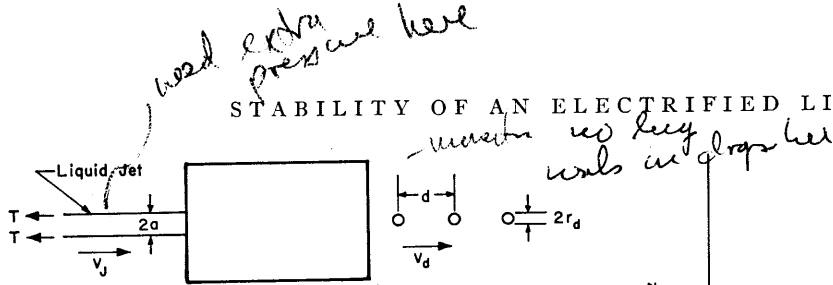 need extra
pressure here
STABILITY OF AN ELECTRIFIED LI
no
in drops
Liquid Jet
T
T
2a
V_J
d
V_d
2r_d